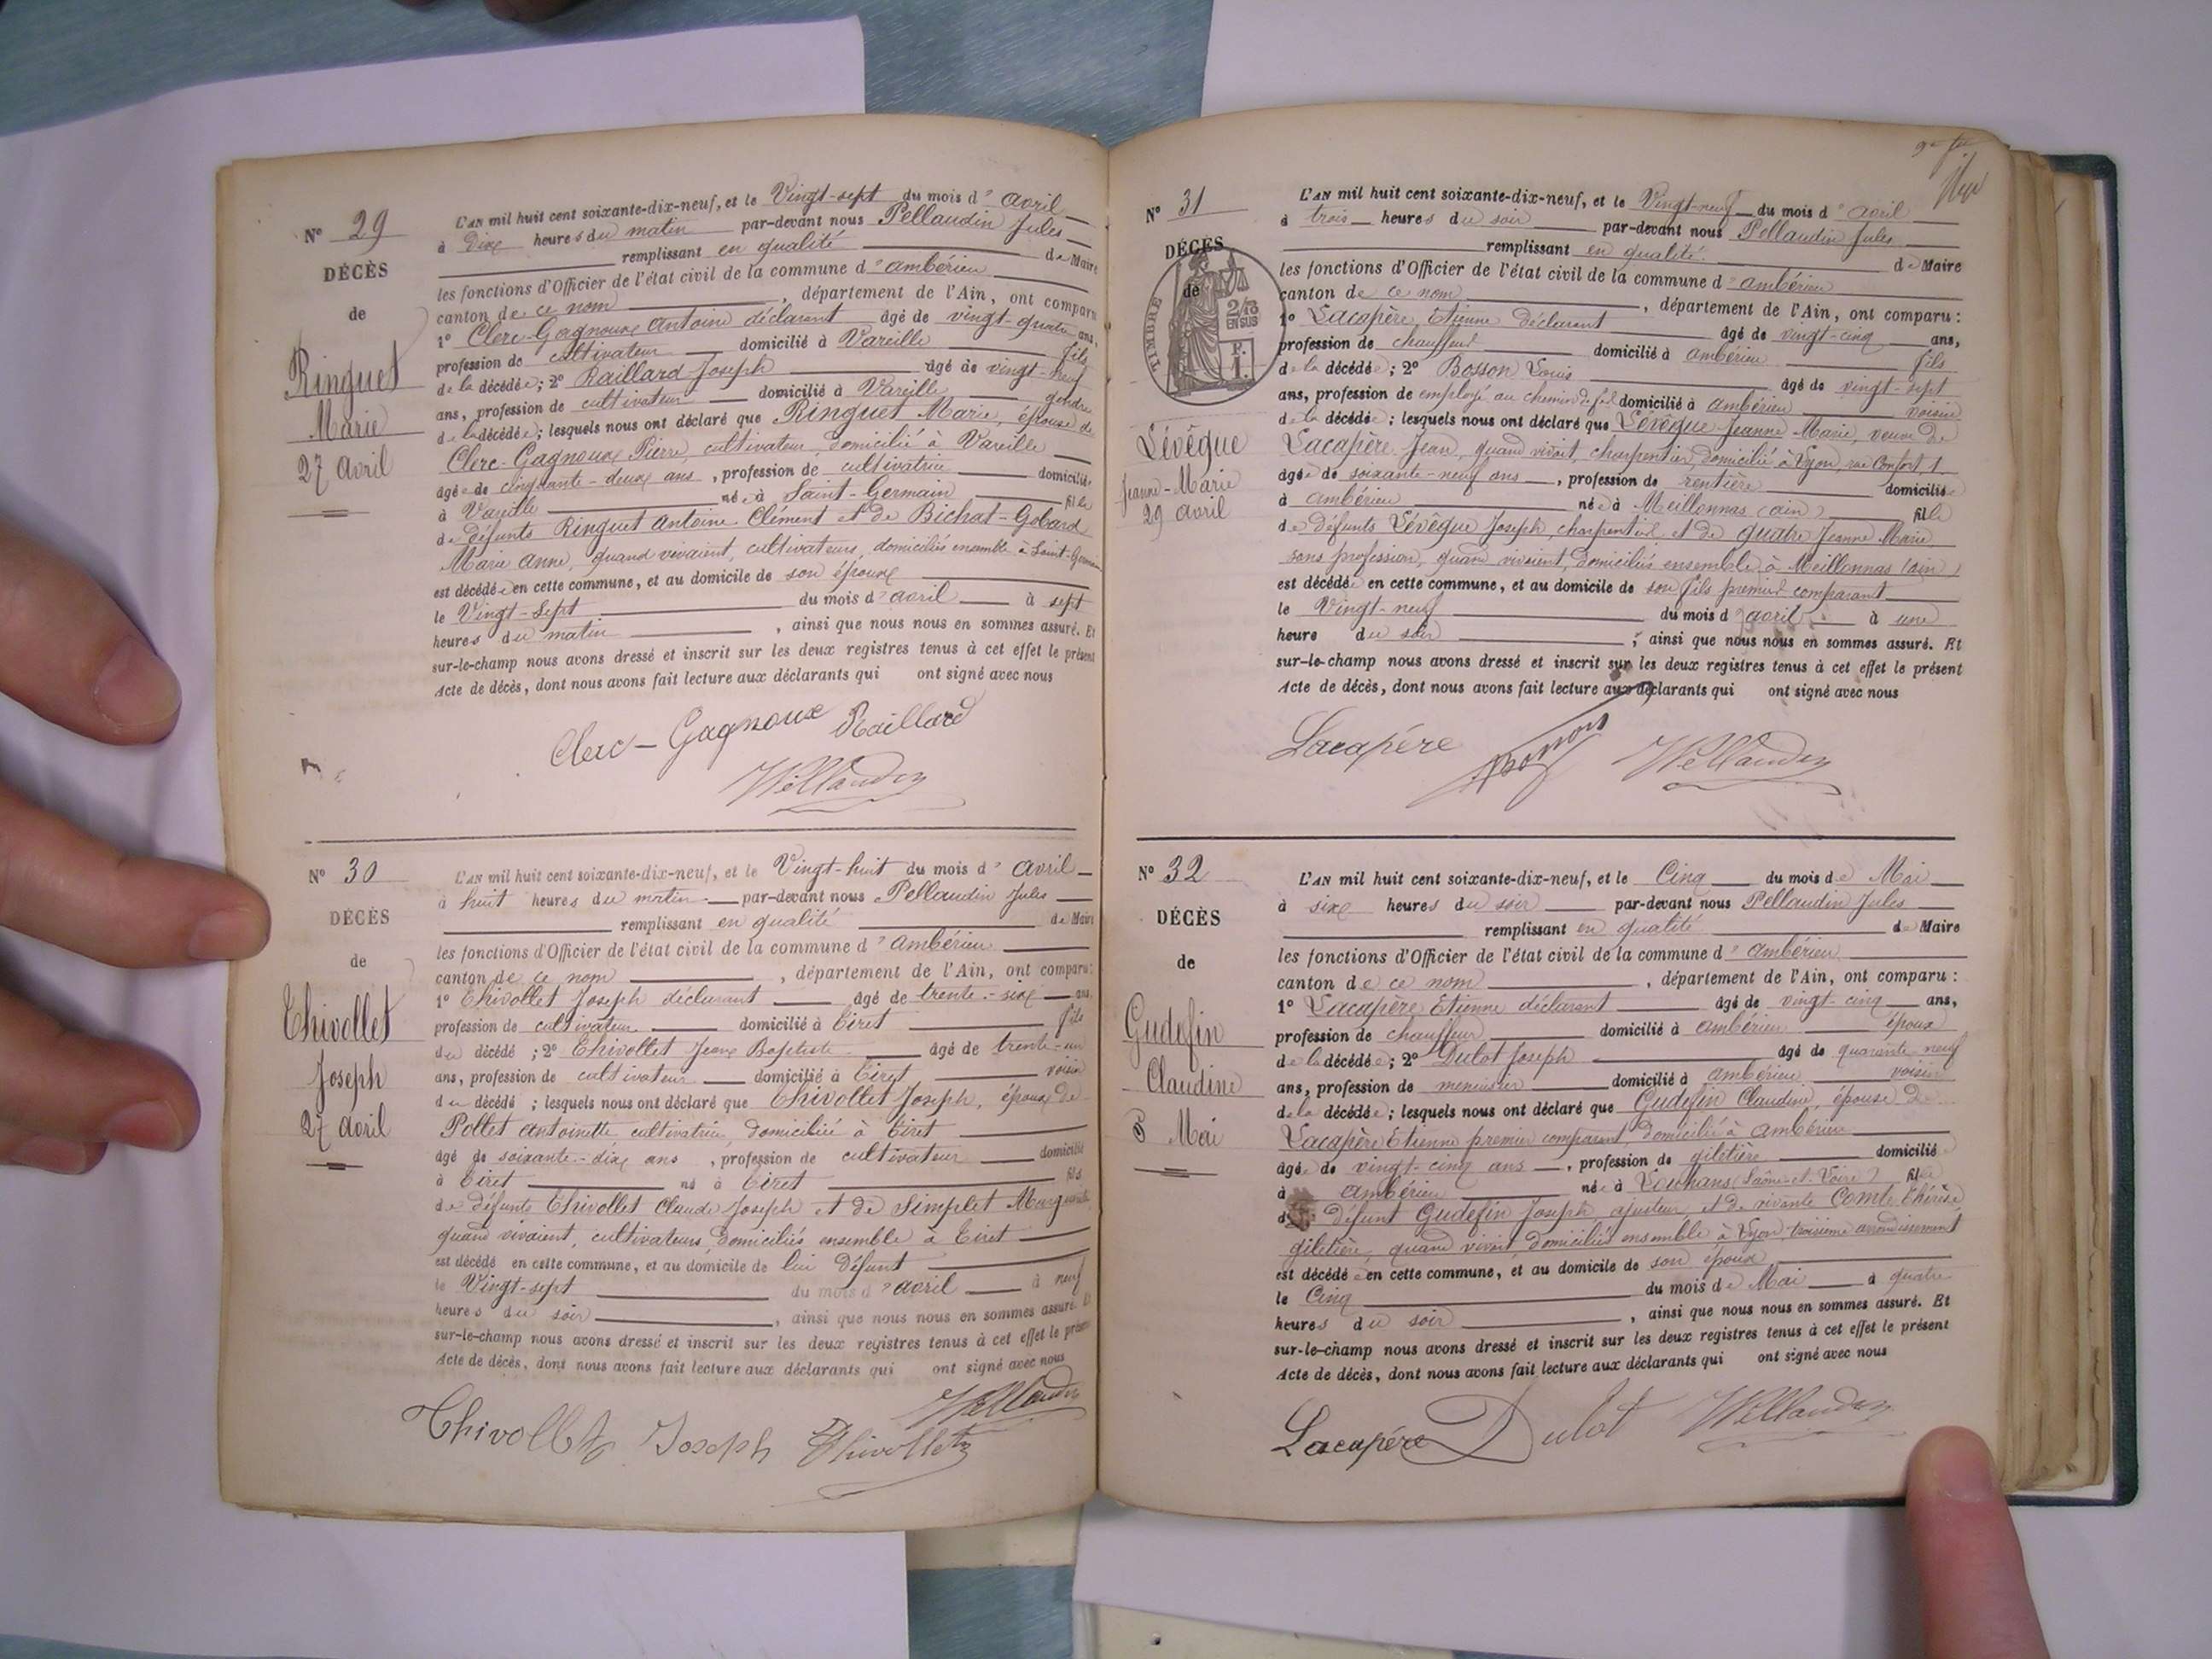 N° 29
DÉCÈS
de
Ringuet
Marie
27 avril
L'AN mil huit cent soixante-dix-neuf, et le Vingt-sept du mois d'avril
à Dix heures du matin par-devant nous Pellaudin Jules
remplissant en qualité de Maire
les fonctions d'Officier de l'état civil de la commune d'ambérieu
canton de ce nom, département de l'Ain, ont comparu
1° Clerc-Gagnoux Antoine déclarant âgé de vingt-quatre ans,
profession de cultivateur domicilié à Vareille fils
de la décédée; 2° Raillard Joseph âgé de vingt-neuf
ans, profession de cultivateur domicilié à Vareille gendre
de la décédée; lesquels nous ont déclaré que Ringuet Marie, épouse de
Clerc-Gagnoux Pierre, cultivateur domicilié à Vareille
âgée de cinquante-deux ans, profession de cultivatrice domiciliée
à Vareille née à Saint-Germain fille
de défunts Ringuet Antoine Clément et de Bichat-Gobard
Marie Anne, quand vivaient, cultivateurs, domiciliés ensemble à Saint-Germain
est décédée en cette commune, et au domicile de son époux
le Vingt-Sept du mois d'avril à sept
heures du matin, ainsi que nous nous en sommes assuré. Et
sur-le-champ nous avons dressé et inscrit sur les deux registres tenus à cet effet le présent
Acte de décès, dont nous avons fait lecture aux déclarants qui ont signé avec nous
Clerc-Gagnoux Raillard
Pellaudin
N° 30
DÉCÈS
de
Thivollet
Joseph
27 avril
L'AN mil huit cent soixante-dix-neuf, et le Vingt-huit du mois d'avril
à huit heures du matin par-devant nous Pellaudin Jules
remplissant en qualité de Maire
les fonctions d'Officier de l'état civil de la commune d'ambérieu
canton de ce nom, département de l'Ain, ont comparu:
1° Thivollet Joseph déclarant âgé de trente-six ans,
profession de cultivateur domicilié à Tiret fils
du décédé; 2° Thivollet Jean Baptiste âgé de trente-un
ans, profession de cultivateur domicilié à Tiret voisin
du décédé; lesquels nous ont déclaré que Thivollet Joseph, époux de
Pollet Antoinette, cultivatrice, domiciliée à Tiret
âgé de soixante-dix ans, profession de cultivateur domicilié
à Tiret né à Tiret fils
de défunts Thivollet Claude Joseph et de Simplet Marguerite
quand vivaient, cultivateurs, domiciliés ensemble à Tiret
est décédé en cette commune, et au domicile de lui défunt
le Vingt-sept du mois d'avril à neuf
heures du soir, ainsi que nous nous en sommes assuré. Et
sur-le-champ nous avons dressé et inscrit sur les deux registres tenus à cet effet le présent
Acte de décès, dont nous avons fait lecture aux déclarants qui ont signé avec nous
Pellaudin
Thivollet Joseph Thivollet
N° 31
DÉCÈS
de
TIMBRE
2/10 EN SUS
Lévêque
Jeanne-Marie
29 avril
L'AN mil huit cent soixante-dix-neuf, et le Vingt-neuf du mois d'avril
à trois heures du soir par-devant nous Pellaudin Jules
remplissant en qualité de Maire
les fonctions d'Officier de l'état civil de la commune d'ambérieu
canton de ce nom, département de l'Ain, ont comparu:
1° Lacapère Etienne déclarant âgé de vingt-cinq ans,
profession de chauffeur domicilié à ambérieu fils
de la décédée; 2° Bosson Louis âgé de vingt-sept
ans, profession de employé au chemin de fer domicilié à ambérieu voisin
de la décédée; lesquels nous ont déclaré que Lévêque Jeanne Marie, veuve de
Lacapère Jean, quand vivait, charpentier, domicilié à Lyon, rue Confort 1
âgée de soixante-neuf ans, profession de rentière domiciliée
à ambérieu née à Meillonnas (ain) fille
de défunts Lévêque Joseph, charpentier et de quatre Jeanne Marie,
sans profession, quand vivaient, domiciliés ensemble à Meillonnas (ain)
est décédée en cette commune, et au domicile de son fils premier comparant
le Vingt-neuf du mois d'avril à une
heure du soir, ainsi que nous nous en sommes assuré. Et
sur-le-champ nous avons dressé et inscrit sur les deux registres tenus à cet effet le présent
Acte de décès, dont nous avons fait lecture aux déclarants qui ont signé avec nous
Lacapére Bosson Pellaudin
N° 32
DÉCÈS
de
Gudefin
Claudine
5 Mai
L'AN mil huit cent soixante-dix-neuf, et le Cinq du mois de Mai
à six heures du soir par-devant nous Pellaudin Jules
remplissant en qualité de Maire
les fonctions d'Officier de l'état civil de la commune d'ambérieu
canton de ce nom, département de l'Ain, ont comparu:
1° Lacapère Etienne déclarant âgé de vingt-cinq ans,
profession de chauffeur domicilié à ambérieu époux
de la décédée; 2° Dulot Joseph âgé de quarante-neuf
ans, profession de menuisier domicilié à ambérieu voisin
de la décédée; lesquels nous ont déclaré que Gudefin Claudine, épouse de
Lacapère Etienne premier comparant, domicilié à ambérieu
âgée de vingt-cinq ans, profession de giletière domiciliée
à ambérieu née à Louhans (Saône-et-Loire) fille
de défunt Gudefin Joseph ajusteur et de vivante Comte Thérèse,
giletière, quand vivait domiciliés ensemble à Lyon, troisième arrondissement
est décédée en cette commune, et au domicile de son époux
le Cinq du mois de Mai à quatre
heures du soir, ainsi que nous nous en sommes assuré. Et
sur-le-champ nous avons dressé et inscrit sur les deux registres tenus à cet effet le présent
Acte de décès, dont nous avons fait lecture aux déclarants qui ont signé avec nous
Lacapére Dulot Pellaudin